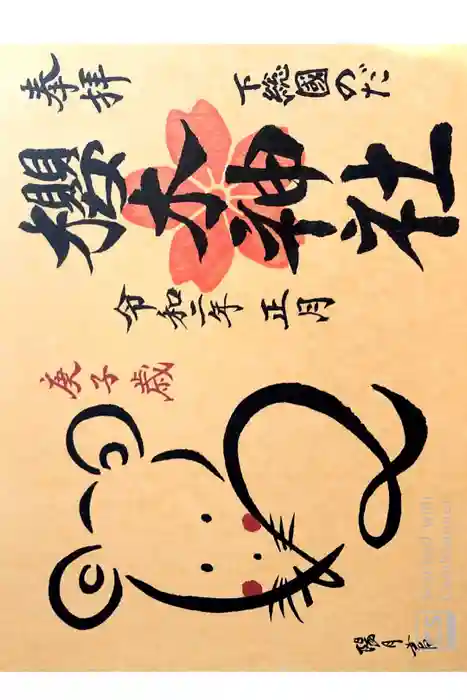 奉拝
下総國のだ
櫻木神社
令和二年 正月
庚子歳
CS Scanned with
CamScanner